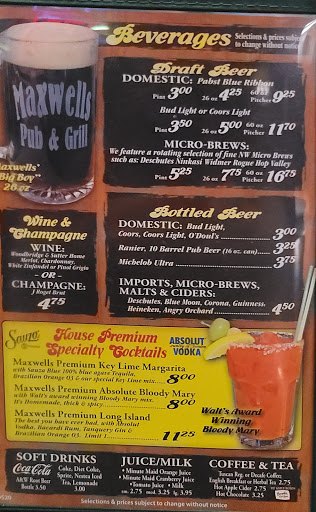 Beverages
Selections & prices subject
to change without notice
Maxwells
Pub & Grill
Maxwells'
"Big Boy"
26 oz
Draft Beer
DOMESTIC: Pabst Blue Ribbon
Pint 3.00 26 oz 4.25 60 oz Pitcher 9.25
Bud Light or Coors Light
Pint 3.50 26 oz 5.00 60 oz Pitcher 11.70
MICRO-BREWS:
We feature a rotating selection of fine NW Micro Brews
such as: Deschutes Ninkasi Widmer Rogue Hop Valley
Pint 5.25 26 oz 7.75 60 oz Pitcher 16.75
Wine &
Champagne
WINE:
Woodbridge & Sutter Home
Merlot, Chardonnay,
White Zinfandel or Pinot Grigio
- OR -
CHAMPAGNE:
J Roget Brut
4.75
Bottled Beer
DOMESTIC: Bud Light,
Coors, Coors Light, O'Doul's 3.00
Ranier, 10 Barrel Pub Beer (16 oz. can) 3.25
Michelob Ultra 3.75
IMPORTS, MICRO-BREWS,
MALTS & CIDERS:
Deschutes, Blue Moon, Corona, Guinness,
Heineken, Angry Orchard 4.50
Sauza
House Premium
Specialty Cocktails
ABSOLUT
VODKA
Maxwells Premium Key Lime Margarita
with Sauza Blue 100% blue agave Tequila,
Brazilian Orange 03 & our special Key Lime mix 8.00
Maxwells Premium Absolute Bloody Mary
with Walt's award winning Bloody Mary mix.
It's Homemade, thick & spicy 8.00
Maxwells Premium Long Island
The best you have ever had, with Absolut
Vodka, Bacardi Rum, Tanquery Gin &
Brazilian Orange 03. Limit 1 11.25
Walt's Award
Winning
Bloody Mary
SOFT DRINKS
Coca-Cola
Coke, Diet Coke,
Sprite, Nestea Iced
Tea, Lemonade
3.00
A&W Root Beer
Bottle 3.50
JUICE/MILK
• Minute Maid Orange Juice
• Minute Maid Cranberry Juice
• Tomato Juice • Milk
sm. 2.75 med. 3.25 lg. 3.95
COFFEE & TEA
Tuscan Reg. or Decafe Coffee
English Breakfast or Herbal Tea 2.75
Hot Apple Cider 2.75
Hot Chocolate 3.25
Selections & prices subject to change without notice